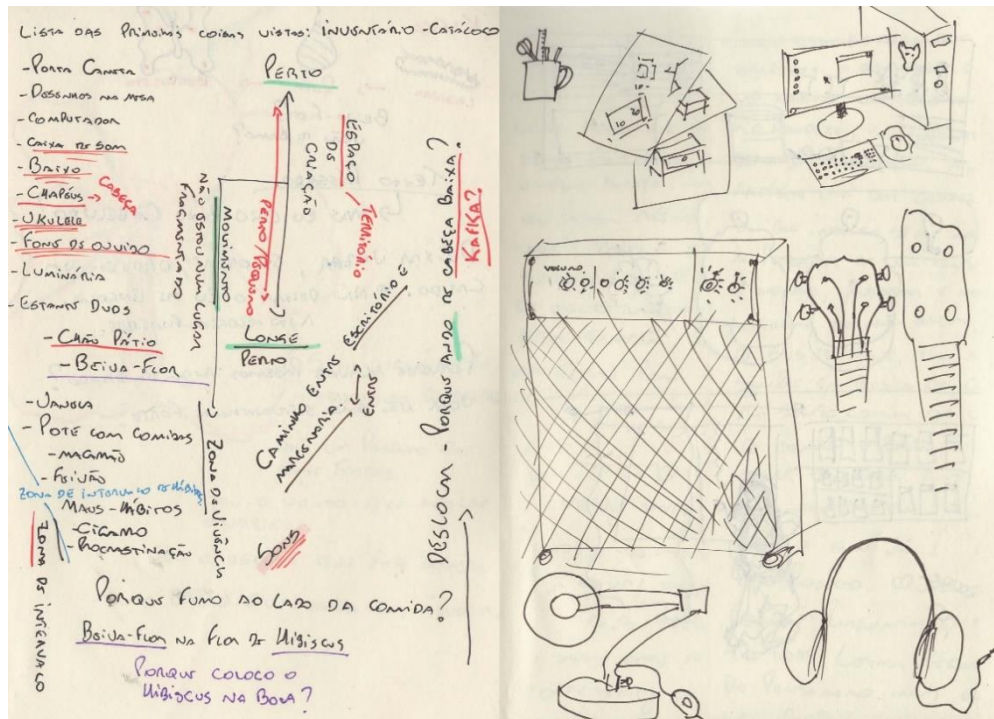 LISTA DAS PRIMEIRAS COISAS VISTAS: INVENTÁRIO-CATÁLOGO
- PORTA CANETA
- DESENHOS NA MESA
- COMPUTADOR
- CAIXA DE SOM
- BAIXO
- CHAPÉUS → CABEÇA
- UKULELE
- FONE DE OUVIDO
- LUMINÁRIA
- ESTANTE DVDS
- CHÃO PÁTIO
- BEIJA-FLOR
- POTE COM COMIDAS
- MACARRÃO
- FEIJÃO
ZONA DE INTERVALO
MAUS-HÁBITOS
- CIGARRO
- PROCRASTINAÇÃO
ZONA DE INTERVALO
PERTO
ESPAÇO DE CRIAÇÃO
TERRITÓRIO
NÃO ESTOU NUM LUGAR
FRAGMENTADO
MOVIMENTO
LONGE
PERTO
CAMINHO ENTRE
MARCENARIA E ESCRITÓRIO
ZONA DE VIVÊNCIA
SONS
DESLOCAR - PORQUE ANDO DE CABEÇA BAIXA?
KAFKA?
PORQUE FUMO AO LADO DA COMIDA?
BEIJA-FLOR NA FLOR DE HIBISCUS
PORQUE COLOCO O
HIBISCUS NA BOCA?
VOLUME